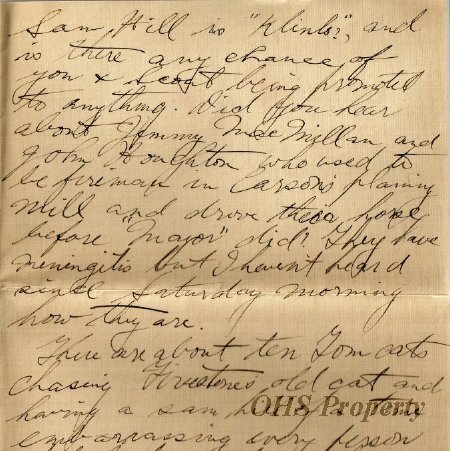 Sam Hill is "Klinks?", and
is there any chance of
you & Scout being promoted
to anything. Did you hear
about Jimmy MacMillan and
John Houghton who used to
be fireman in Carson's planing
mill and drove their horse
before "Mayor" did? They have
meningitis but I haven't heard
since Saturday morning
how they are.
There are about ten Tom cats
chasing Firestone's old cat and
having a sam hill of a time
embarrassing every person
OHS Property